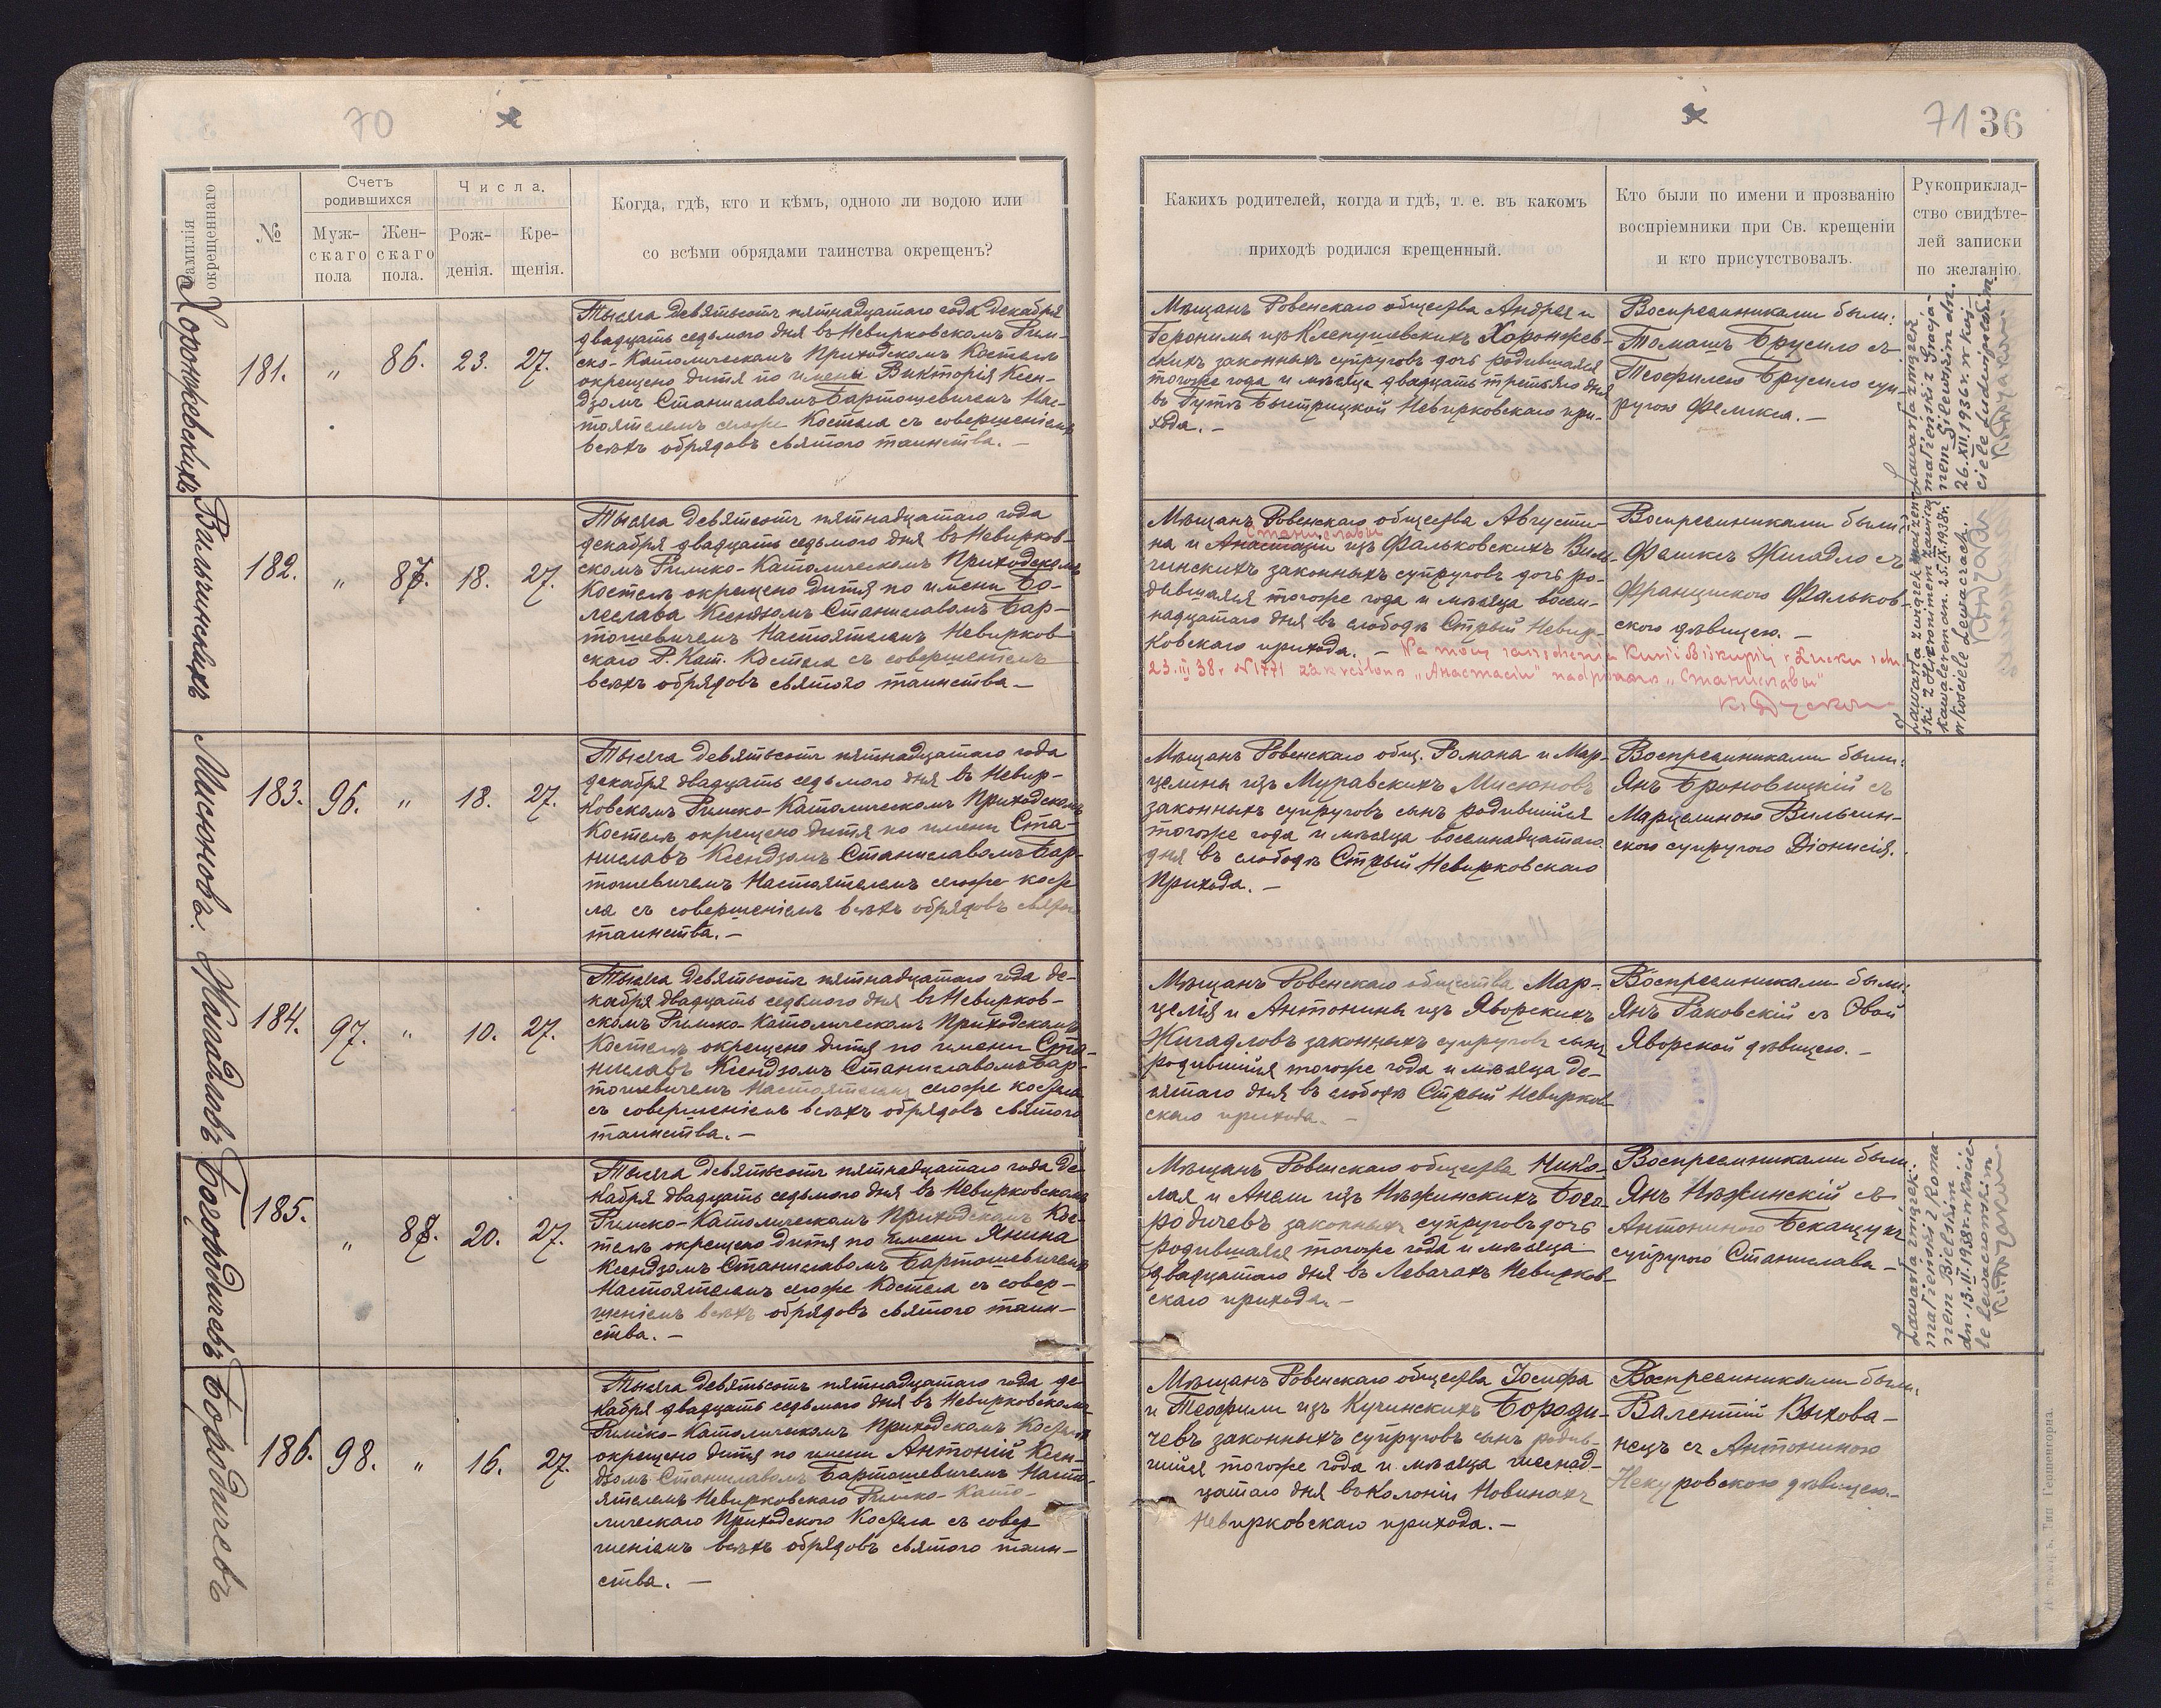 70
71 36
Фамилія окрещеннаго
№
Счетъ родившихся
Муж-
скаго
пола
Жен-
скаго
пола.
Числа.
Рож-
денія.
Кре-
щенія.
Когда, гдѣ, кто и кѣмъ, одною ли водою или
со всѣми обрядами таинства окрещенъ?
Какихъ родителей, когда и гдѣ, т. е. въ какомъ
приходѣ родился крещенный.
Кто были по имени и прозванію
воспріемники при Св. крещеніи
и кто присутствовалъ.
Рукоприклад-
ство свидѣте-
лей записки
по желанію.
Хоронжевскихъ
181. " 86. 23. 27.
Тысяча девятьсотъ пятнадцатаго года декабря
двадцать седьмого дня въ Невирковскомъ Рим-
ско-Католическомъ Приходскомъ Костелѣ
окрещено дитя по имены Викторія Ксен-
дзомъ Станиславомъ Бартошевичемъ Нас-
тоятелемъ сегоже Костела съ совершеніемъ
всѣхъ обрядовъ святого таинства. —
Мѣщанъ Ровенскаго общества Андрея и
Геронимы изъ Клепушевскихъ Хоронжев-
скихъ законныхъ супруговъ дочь родившаяся
тогоже года и мѣсяца двадцать третьяго дня
въ Гутѣ Быстрицкой Невирковскаго при-
хода. —
Воспреемниками были:
Томашъ Брусило съ
Теофилею Брусило суп-
ругою Феликса. —
Zawarła związek
małżeński z Gracja-
nem Gilewskim dn.
26.XII.1936 r. w koś-
ciele Ludwipolskim
Вильчинскихъ
182. " 87. 18. 27.
Тысяча девятсотъ пятнадцатаго года
декабря двадцать седьмого дня въ Невирков-
скомъ Римско-Католическомъ Приходскомъ
Костелѣ окрещено дитя по имени Бо-
леслава Ксендзомъ Станиславомъ Бар-
тошевичемъ Настоятелемъ Невирков-
скаго Р. Кат. Костела съ совершеніемъ
всѣхъ обрядовъ святого таинства —
Мѣщанъ Ровенскаго общества Августи-
Станиславы
на и Анастазіи изъ Фальковскихъ Виль-
чинскихъ законныхъ супруговъ дочь ро-
дившаяся тогоже года и мѣсяца восем-
надцатаго дня въ слободѣ Стрый Невир-
ковскаго прихода. — Na mocy Kurii Biskupiej w Łucku z dn.
23.III 38 r. N 1771 zakreślono „Анастасіи" nadpisano „Станиславы"
Воспреемниками были:
Феликсъ Жигадло съ
Францишкою Фальков-
скою дѣвицею. —
Zawarła związek małżeń-
ski z Hieronimem
kawalerem dn. 25.IX.1938 r.
w kościele Lewaczach.
Мисюновъ.
183. 96. " 18. 27.
Тысяча девятьсотъ пятнадцатаго года
декабря двадцать седьмого дня въ Невир-
ковскомъ Римско-Католическомъ Приходскомъ
Костелѣ окрещено дитя по имени Ста-
ниславъ Ксендзомъ Станиславомъ Бар-
тошевичемъ Настоятелемъ сегоже косте
ла съ совершеніемъ всѣхъ обрядовъ святого
таинства. —
Мѣщанъ Ровенскаго общ. Романа и Мар-
целины изъ Муравскихъ Мисюновъ
законныхъ супруговъ сынъ родившійся
тогоже года и мѣсяца восемнадцатаго
дня въ слободѣ Стрый Невирковскаго
Прихода. —
Воспреемниками были:
Янъ Броновицкій съ
Марцелиною Вильчин-
скою супругою Діонисія.
Жигадловъ
184. 97. " 10. 27.
Тысяча девятьсотъ пятнадцатаго года де-
кабря двадцать седьмого дня въ Невирков-
скомъ Римско-Католическомъ Приходскомъ
Костелѣ окрещено дитя по имени Ста-
ниславъ Ксендзомъ Станиславомъ Бар-
тошевичемъ Настоятелемъ сегоже костела
съ совершеніемъ всѣхъ обрядовъ святого
таинства. —
Мѣщанъ Ровенскаго общества Мар-
целія и Антонины изъ Яворскихъ
Жигадловъ законныхъ супруговъ сынъ
родившійся тогоже года и мѣсяца де-
сятаго дня въ слободѣ Стрый Невирков-
скаго прихода. —
Воспреемниками были:
Янъ Раковскій съ Эвой
Яворской дѣвицею. —
Богородичевъ
185. " 88. 20. 27.
Тысяча девятьсотъ пятнадцатаго года де-
кабря двадцать седьмого дня въ Невирковскомъ
Римско-Католическомъ Приходскомъ Кос-
телѣ окрещено дитя по имени Янина
Ксендзомъ Станиславомъ Бартошевичемъ
Настоятелемъ сегоже Костела съ совер-
шеніемъ всѣхъ обрядовъ святого таин-
ства. —
Мѣщанъ Ровенскаго общества Нико-
лая и Анели изъ Нѣжинскихъ Бого-
родичевъ законныхъ супруговъ дочь
родившаяся тогоже года и мѣсяца
двадцатаго дня въ Левачахъ Невирков-
скаго прихода. —
Воспреемниками были
Янъ Нѣжинскій съ
Антониною
супругою Станислава —
Zawarła związek
małżeński z Roma-
nem Bielskim
dn. 13.II.1938 r. w koście-
le Lewaczowskim
Бородичевъ
186. 98. " 16. 27.
Тысяча девятьсотъ пятнадцатаго года де-
кабря двадцать седьмого дня въ Невирковскомъ
Римско-Католическомъ Приходскомъ Костелѣ
окрещено дитя по имени Антоній Ксен-
дзомъ Станиславомъ Бартошевичемъ Насто-
ятелемъ Невирковскаго Римско-Като-
лическаго Приходского Костела съ совер-
шеніемъ всѣхъ обрядовъ святого таин-
ства. —
Мѣщанъ Ровенскаго общества Іосифа
и Теофили изъ Кучинскихъ Бороди-
чевъ законныхъ супруговъ сынъ родив-
шійся тогоже года и мѣсяца шеснад-
цатаго дня въ Колоніи Новинахъ
Невирковскаго прихода. —
Воспреемниками были:
Валентій Выхова-
нецъ съ Антониною
Некуровскою дѣвицею. —